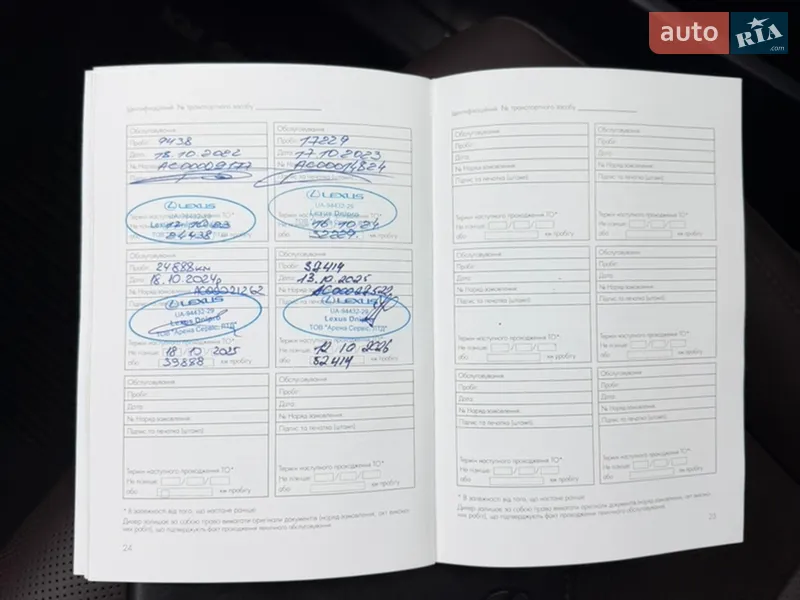 auto RIA .com
Ідентифікаційний № транспортного засобу
Обслуговування
Пробіг 9438
Дата 18.10.2022
№ Наряд-замовлення AC00009577
LEXUS
UA-94432-29
Lexus Dnipro
Термін наступного проходження ТО*
Не пізніше
24438 км пробігу
Обслуговування
Пробіг 17229
Дата 17.10.2023
№ Наряд-замовлення AC00014824
Підпис та печатка (штамп)
LEXUS
UA-94432-29
Lexus Dnipro
Термін наступного проходження ТО*
Не пізніше 16 10 24
або 32229 км пробігу
Обслуговування
Пробіг 24888 км
Дата 18.10.2024р
№ Наряд-замовлення AC00021262
LEXUS
UA-94432-29
Lexus Dnipro
ТОВ "Арена Сервіс, ЛТД"
Термін наступного проходження ТО*
Не пізніше 18 10 2025
або 39888 км пробігу
Обслуговування
Пробіг 37414
Дата 13.10.2025
№ Наряд-замовлення
Підпис та печатка
LEXUS
UA-94432-29
Lexus Dnipro
ТОВ "Арена Сервіс, ЛТД"
Термін наступного проходження ТО*
Не пізніше 12 10 2026
або 52414 км пробігу
Обслуговування
Пробіг
Дата
№ Наряд-замовлення
Підпис та печатка (штамп)
Термін наступного проходження ТО*
Не пізніше
або км пробігу
Обслуговування
Пробіг
Дата
№ Наряд-замовлення
Підпис та печатка (штамп)
Термін наступного проходження ТО*
Не пізніше
або км пробігу
* В залежності від того, що настане раніше
Дилер залишає за собою право вимагати оригінали документів (наряд-замовлення, акт виконаних робіт), що підтверджують факт проходження технічного обслуговування
24
Ідентифікаційний № транспортного засобу
Обслуговування
Пробіг
Дата
№ Наряд-замовлення
Підпис та печатка (штамп)
Термін наступного проходження ТО*
Не пізніше
або км пробігу
Обслуговування
Пробіг
Дата
№ Наряд-замовлення
Підпис та печатка (штамп)
Термін наступного проходження ТО*
Не пізніше
або км пробігу
Обслуговування
Пробіг
Дата
№ Наряд-замовлення
Підпис та печатка (штамп)
Термін наступного проходження ТО*
Не пізніше
або км пробігу
Обслуговування
Пробіг
Дата
№ Наряд-замовлення
Підпис та печатка (штамп)
Термін наступного проходження ТО*
Не пізніше
або км пробігу
Обслуговування
Пробіг
Дата
№ Наряд-замовлення
Підпис та печатка (штамп)
Термін наступного проходження ТО*
Не пізніше
або км пробігу
Обслуговування
Пробіг
Дата
№ Наряд-замовлення
Підпис та печатка (штамп)
Термін наступного проходження ТО*
Не пізніше
або км пробігу
* В залежності від того, що настане раніше
Дилер залишає за собою право вимагати оригінали документів (наряд-замовлення, акт виконаних робіт), що підтверджують факт проходження технічного обслуговування
25